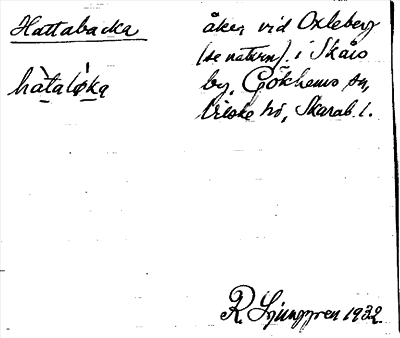 Hattabacka
hàtalø̀ka
åker vid Oxleberg
(se naturn). i Skårs
by, Gökhems sn,
Vilske hd, Skarab. l.
R. Ljunggren 1932.